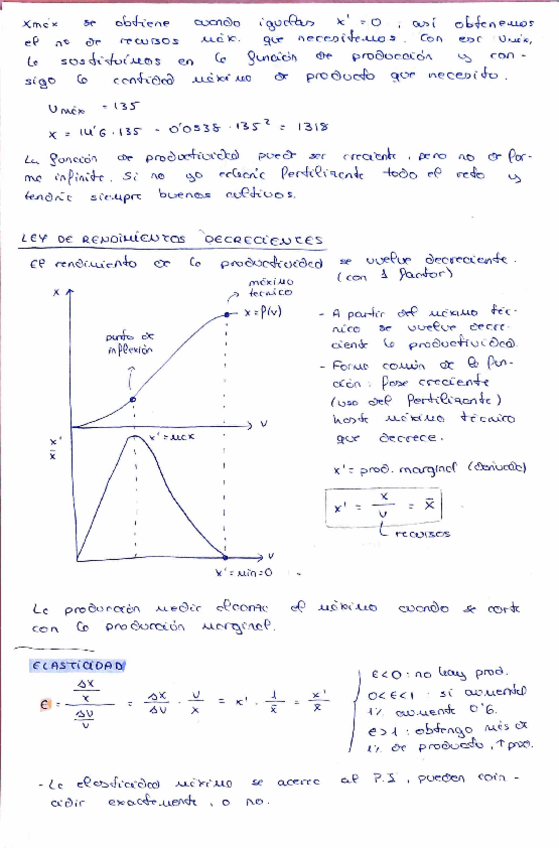 xmáx se obtiene cuando igualas x' = 0, así obtenemos
el no de recursos máx. que necesitamos. Con ese Vmáx,
lo sustituimos en la función de producción y con-
sigo la cantidad máxima de producto que necesito.
Vmáx = 135
x = 14'6 · 135 - 0'0538 · 135² = 1318
La función de productividad puede ser creciente, pero no de for-
ma infinita. Si no yo echaría fertilizante todo el rato y
tendría siempre buenos cultivos.
LEY DE RENDIMIENTOS DECRECIENTES
El rendimiento de la productividad se vuelve decreciente.
(con 1 factor)
x
máximo
técnico
x = f(v)
punto de
inflexión
v
- A partir del máximo téc-
nico se vuelve decre-
ciente la productividad.
- Forma común de la fun-
ción: fase creciente
(uso del fertilizante)
hasta máximo técnico
que decrece.
x'
x̄
x' = máx
v
x' = min = 0
x' = prod. marginal (derivada)
x' = x/v = x̄
recursos
La producción media alcanza el máximo cuando se corta
con la producción marginal.
ELASTICIDAD
ε = (Δx/x)/(Δv/v) = Δx/Δv · v/x = x' · 1/x̄ = x'/x̄
ε<0: no hay prod.
0<ε<1: si aumenta
1% aumenta 0'6.
ε>1: obtengo más de
1% de producto, ↑
- La elasticidad máxima se acerca al P.I, pueden coin-
cidir exactamente, o no.